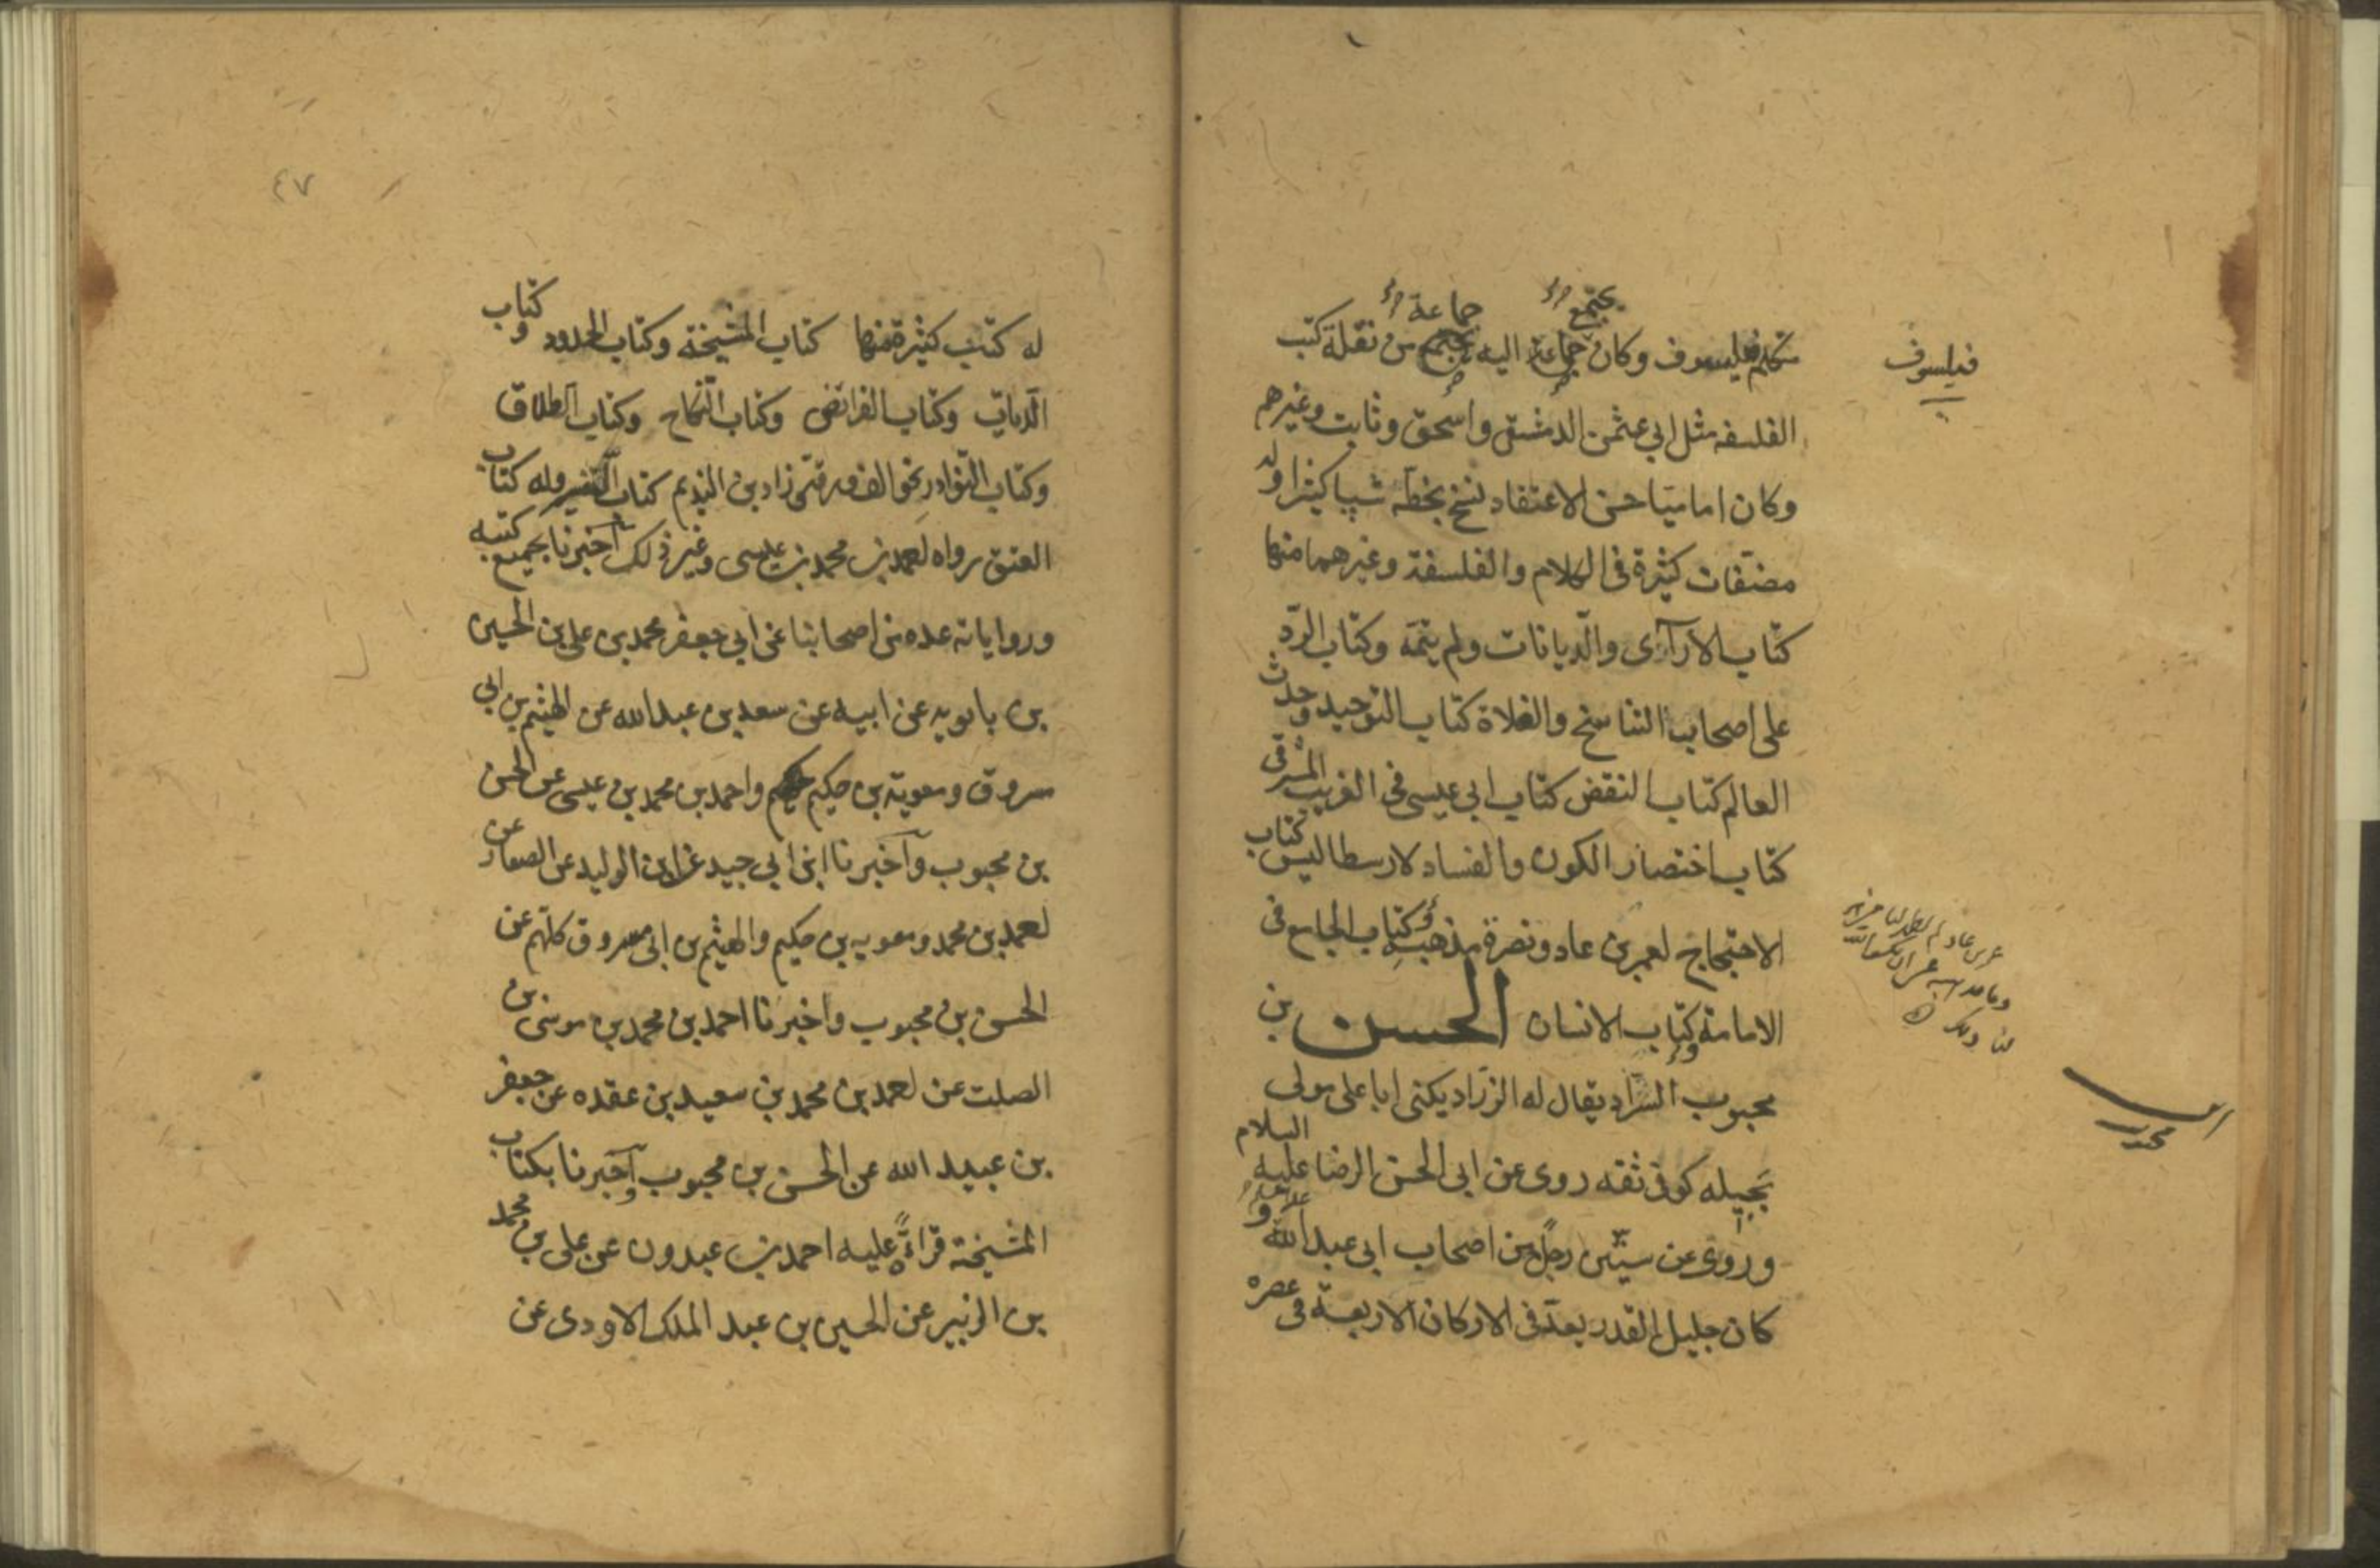 متكلم فيلسوف وكان جماعة اليه يجتمع من نقلة كتب
يجتمع
جماعة
فيلسوف
الفلسفه مثل ابي عثمن الدمشقي واسحق وثابت وغيرهم
وكان اماميا حسن الاعتقاد نسخ بخطه شيئا كثيرا وله
مصنفات كثيرة في الكلام والفلسفة وغيرهما منها
كتاب الارآى والديانات ولم يتمه وكتاب الردّ
على اصحاب التناسخ والغلاة كتاب التوحيد وحدث
العالم كتاب النقض كتاب ابي عيسى في الغريب المشرقى
كتاب اختصار الكون والفساد لارسطاليس كتاب
الاحتجاج لعمر بن عاد ونصرة مذهبه وكتاب الجامع في
الامامة وكتاب الانسان الحسن بن
محبوب السرّاد يقال له الزرّاد يكنى ابا على مولى
بجيله كوفى ثقه روى عن ابى الحسن الرضا عليه السلام
وروى عن ستّين رجلا من اصحاب ابى عبد الله و
كان جليل القدر يعدّ فى الاركان الاربعة فى عصره
٤٧
له كتب كثيرة منها كتاب المشيخة وكتاب الحدود وكتاب
الديات وكتاب الفرائض وكتاب النكاح وكتاب الطلاق
وكتاب النوادر نحو الف ورقة زاد بن النديم كتاب التفسير وله كتاب
العتق رواه احمد بن محمد بن عيسى وغير ذلك اخبرنا بجميع كتبه
ورواياته عده من اصحابنا عن ابي جعفر محمد بن على بن الحسين
بن بابويه عن ابيه عن سعد بن عبد الله عن الهيثم بن ابي
مسروق ومعوية بن حكيم واحمد بن محمد بن عيسى عن الحسن
بن محبوب وأخبرنا ابن ابي جيد عن ابن الوليد عن الصفار عن
احمد بن محمد ومعويه بن حكيم والهيثم بن ابى مسروق كلهم عن
الحسن بن محبوب واخبرنا احمد بن محمد بن موسى بن
الصلت عن احمد بن محمد بن سعيد بن عقده عن جعفر
بن عبيد الله عن الحسن بن محبوب وأخبرنا بكتاب
المشيخة قراءةً عليه احمد بن عبدون عن على بن محمد
بن الزبير عن الحسين بن عبد الملك الاودى عن